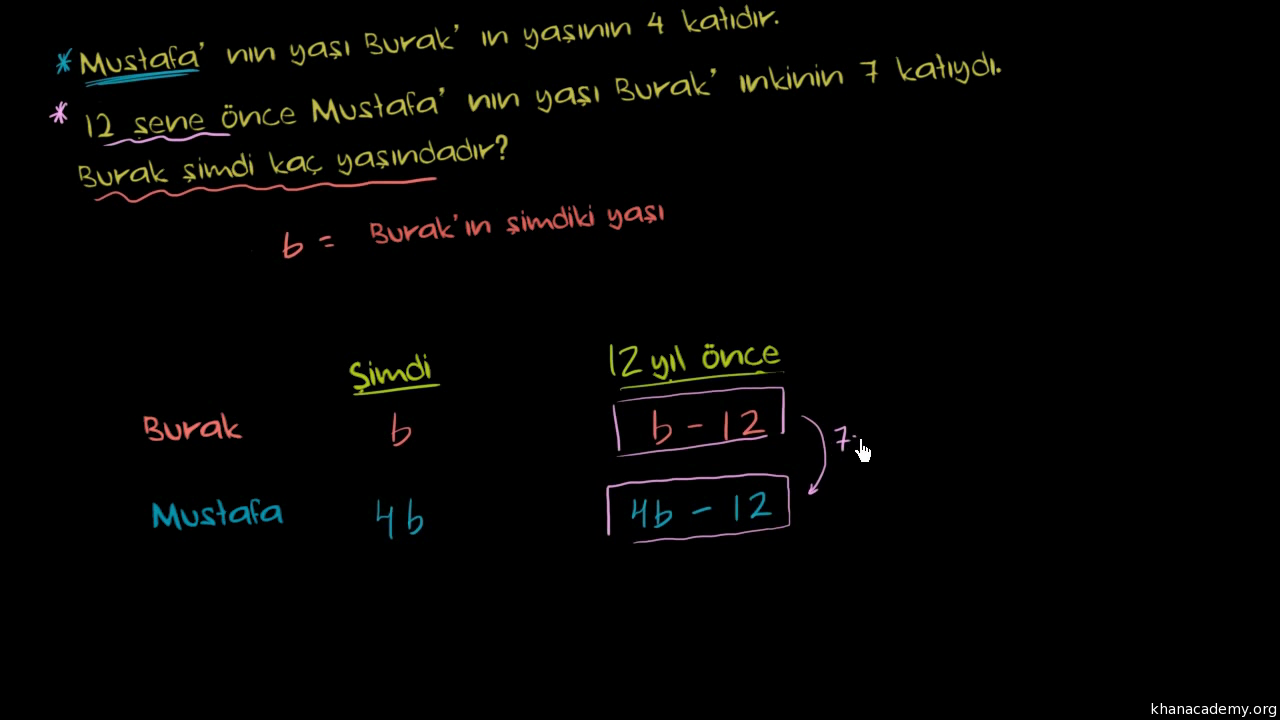 * Mustafa' nın yaşı Burak' ın yaşının 4 katıdır.
* 12 sene önce Mustafa' nın yaşı Burak' ınkinin 7 katıydı.
Burak şimdi kaç yaşındadır?
b = Burak'ın şimdiki yaşı
Şimdi 12 yıl önce
Burak b b - 12
7.
Mustafa 4b 4b - 12
khanacademy.org